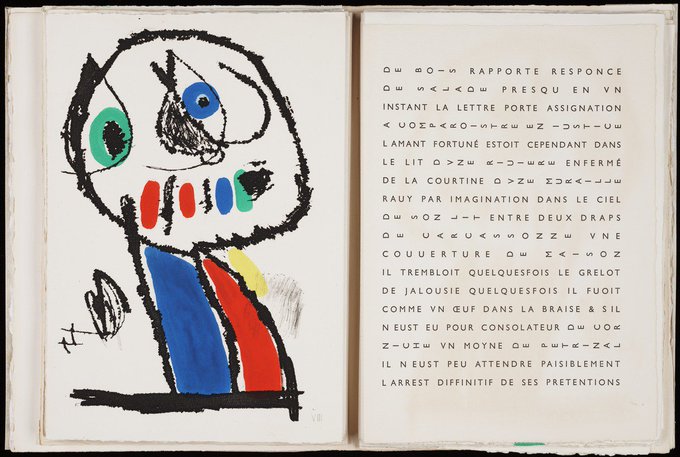 DE BOIS RAPPORTE RESPONCE
DE SALADE PRESQU EN VN
INSTANT LA LETTRE PORTE ASSIGNATION
A COMPAROISTRE EN IUSTICE
LAMANT FORTUNÉ ESTOIT CEPENDANT DANS
LE LIT DVNE RIUIERE ENFERMÉ
DE LA COURTINE DVNE MURAILLE
RAUY PAR IMAGINATION DANS LE CIEL
DE SON LIT ENTRE DEUX DRAPS
DE CARCASSONNE VNE
COUUERTURE DE MAISON
IL TREMBLOIT QUELQUESFOIS LE GRELOT
DE JALOUSIE QUELQUESFOIS IL FUOIT
COMME VN ŒUF DANS LA BRAISE & SIL
N EUST EU POUR CONSOLATEUR DE COR
NICHE VN MOYNE DE PETRINAL
IL N EUST PEU ATTENDRE PAISIBLEMENT
L ARREST DIFFINITIF DE SES PRETENTIONS
VIII